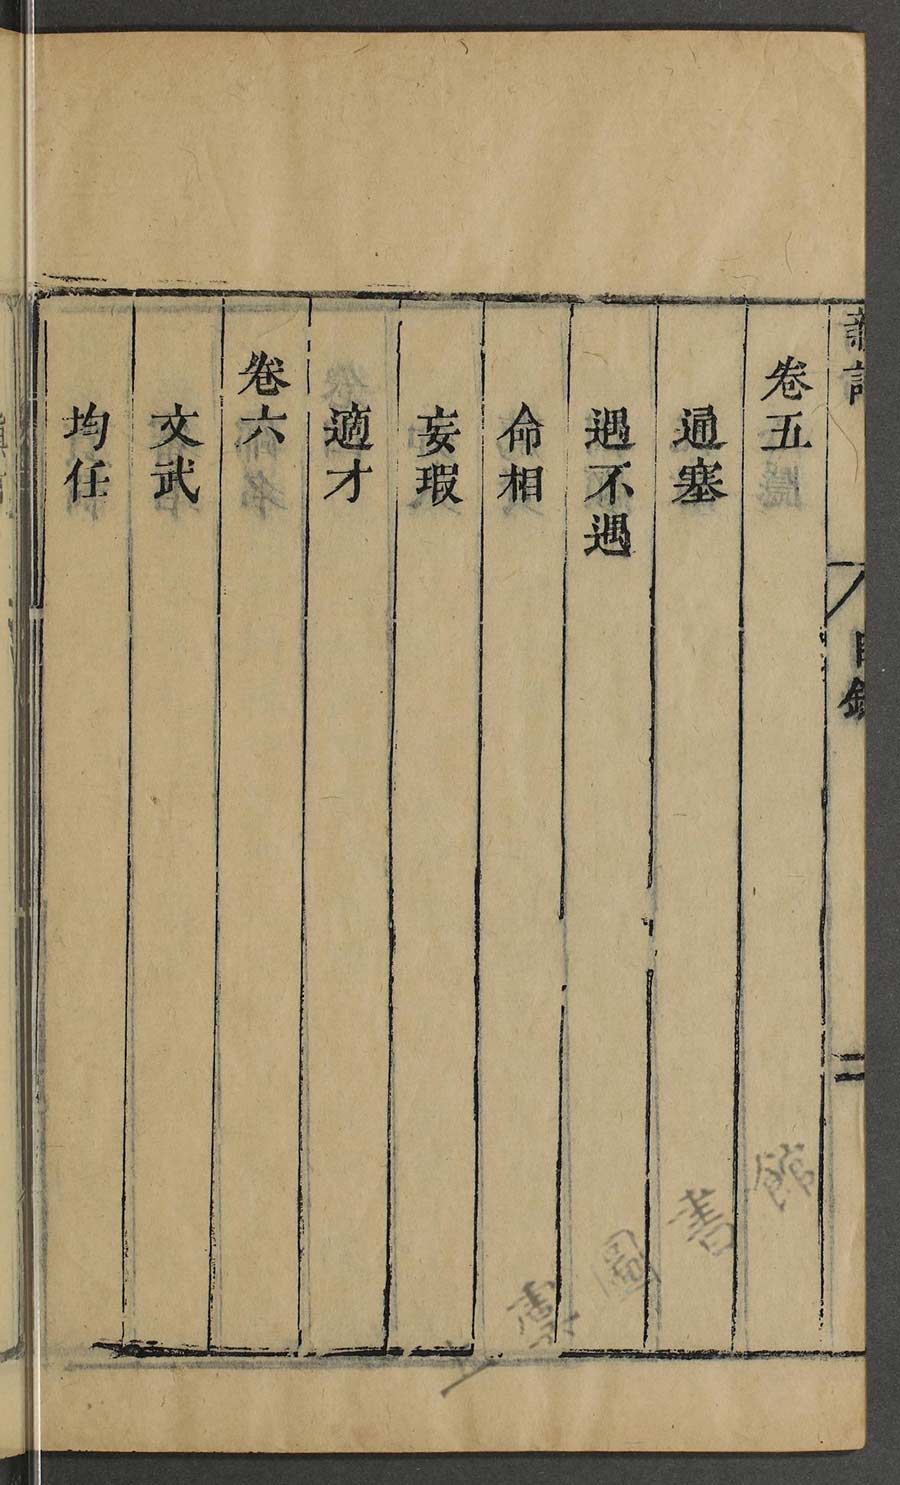 卷五
通塞
遇不遇
命相
妄瑕
適才
卷六
文武
均任
目錄
二
圖書館